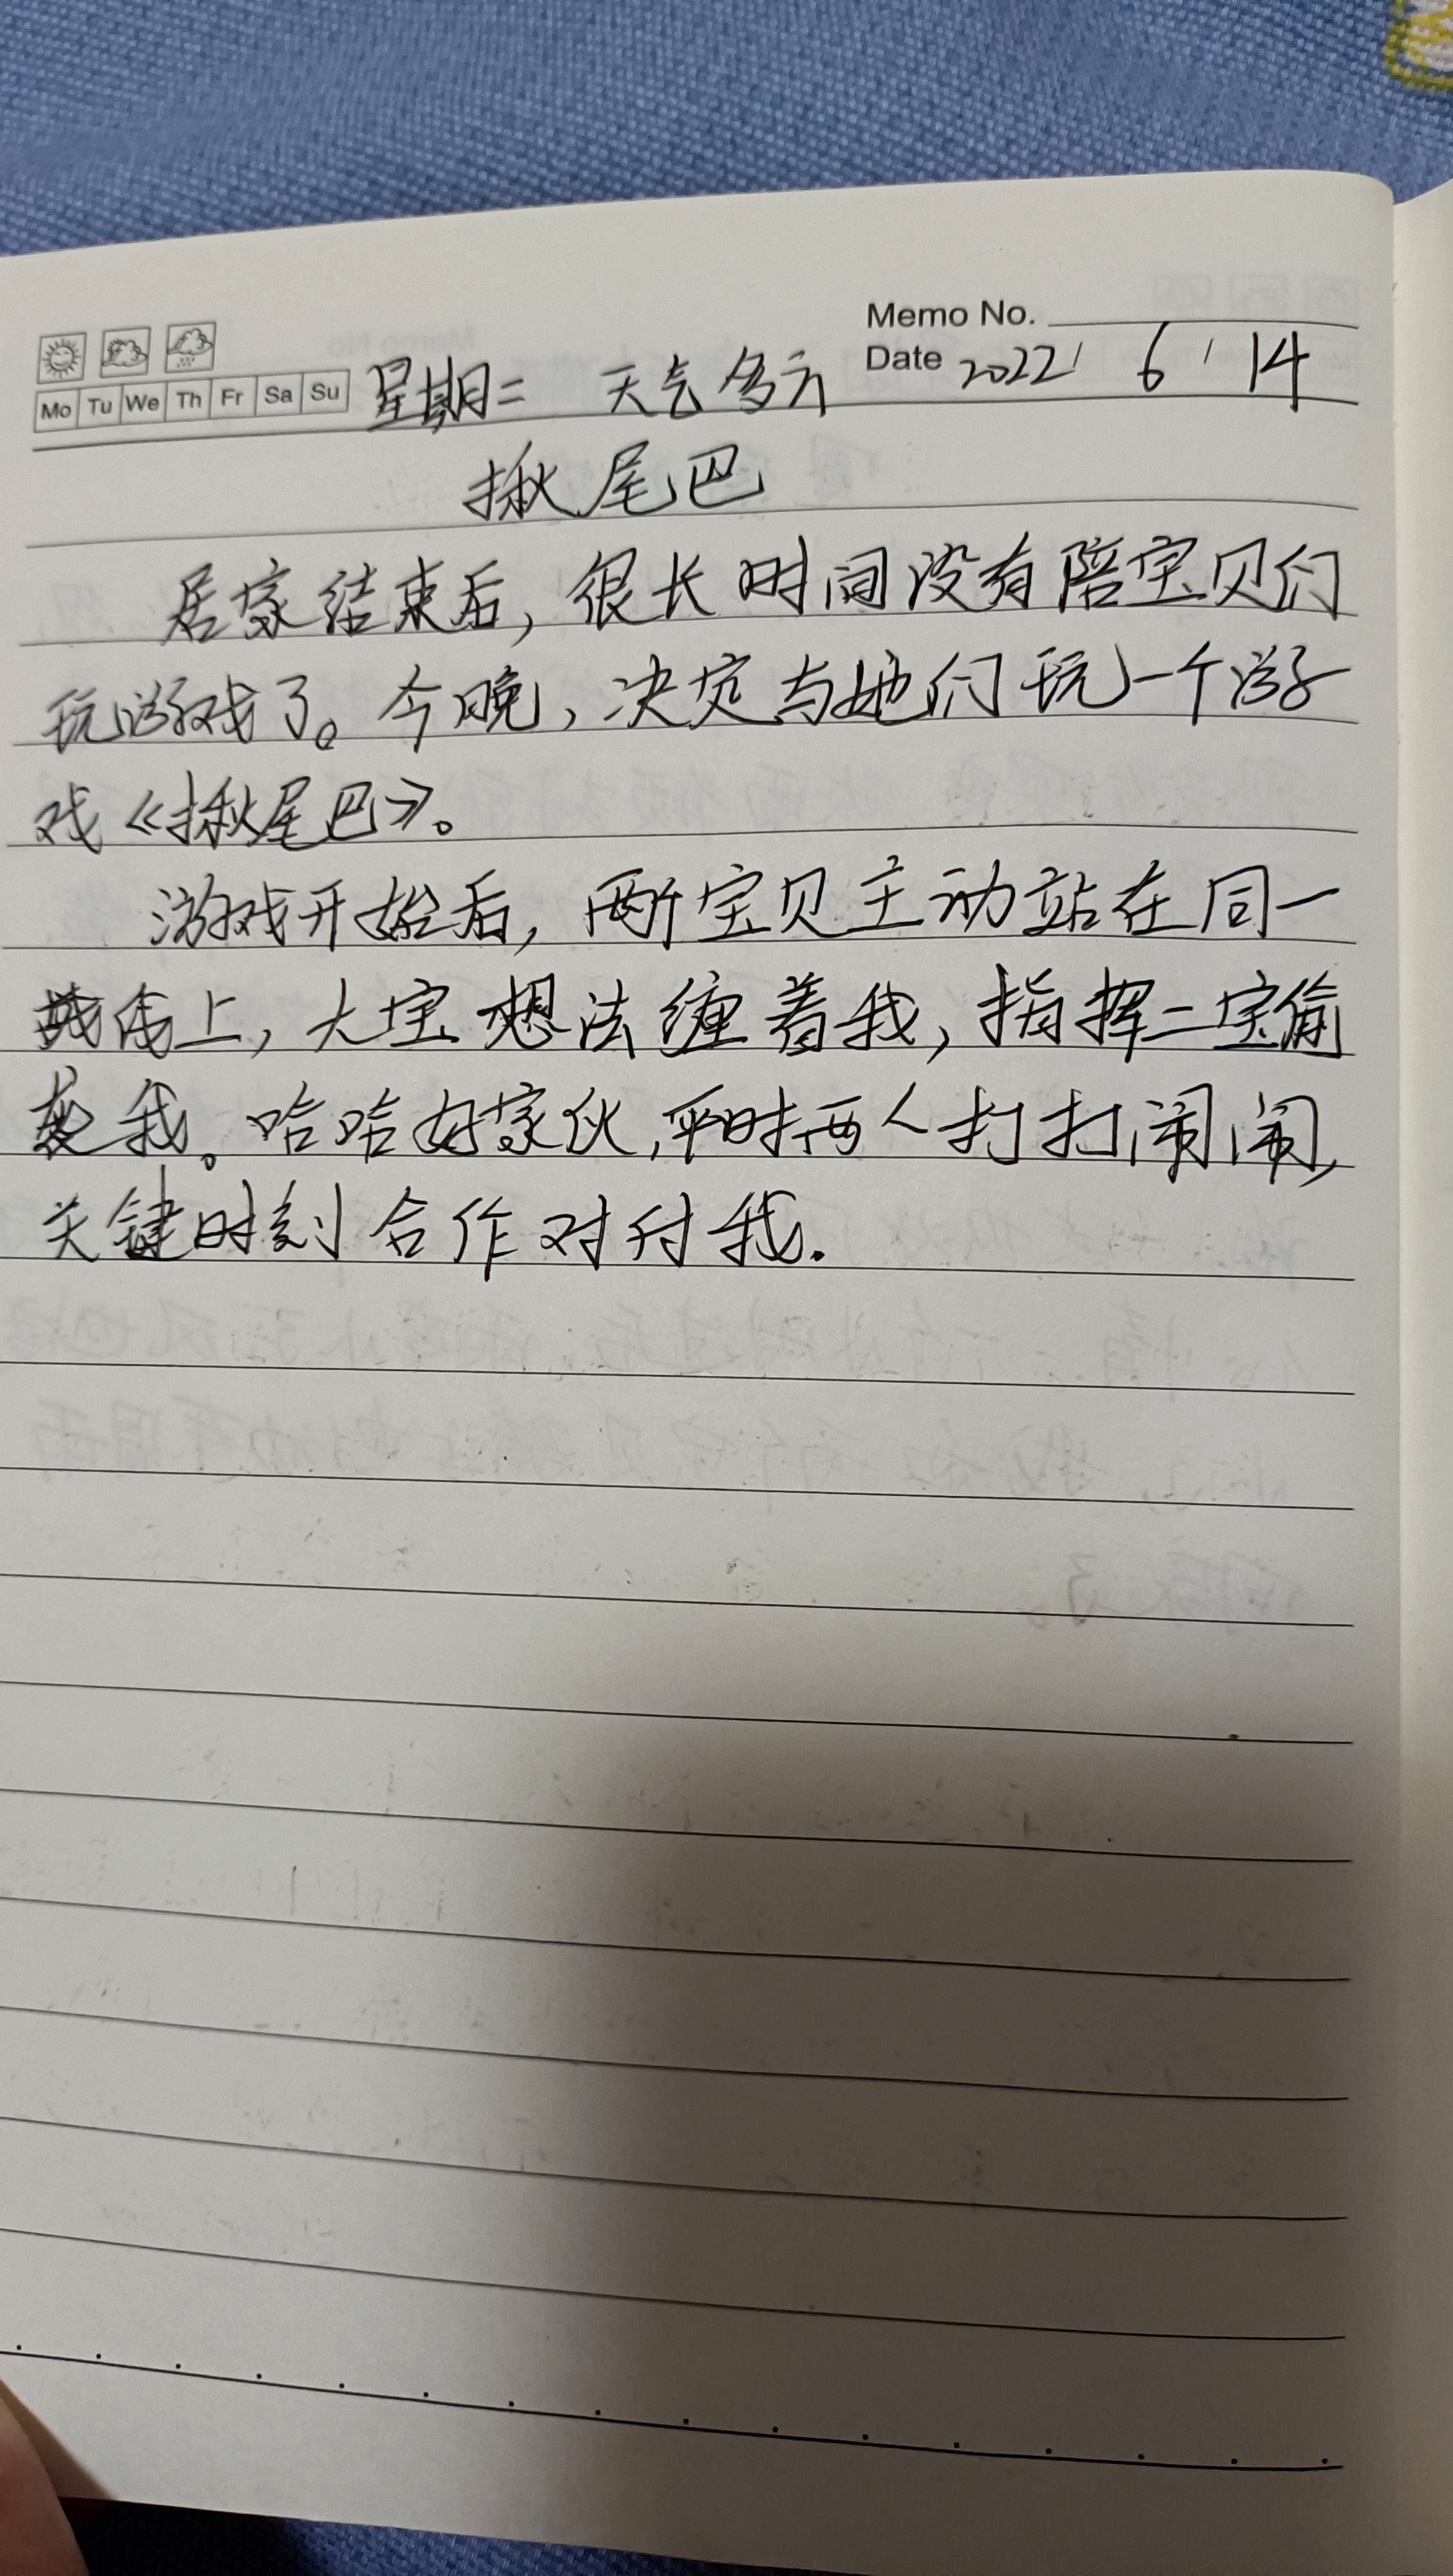 Memo No.
Mo Tu We Th Fr Sa Su 星期二 天气多云 Date 2022 / 6 / 14
揪尾巴
居家结束后，很长时间没有陪宝贝们
玩游戏了。今晚，决定与她们玩一个游
戏《揪尾巴》。
游戏开始后，两个宝贝主动站在同一
战线上，大宝想法缠着我，指挥二宝偷
袭我。哈哈好家伙，平时两人打打闹闹，
关键时刻合作对付我.